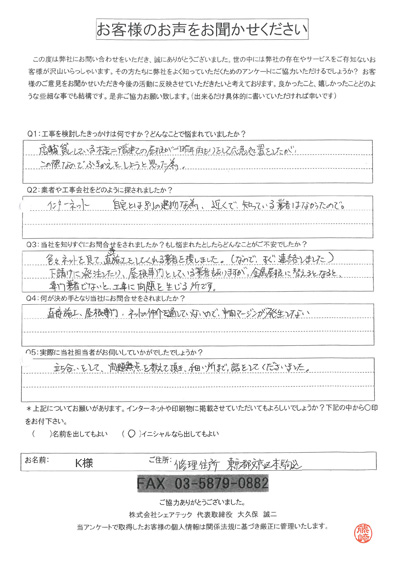 お客様のお声をお聞かせください
この度は弊社にお問い合わせをいただき、誠にありがとうございました。世の中には弊社の存在やサービスをご存知ないお
客様が沢山いらっしゃいます。その方たちに弊社をよく知っていただくためのアンケートにご協力いただけるでしょうか? お客
様のご意見をお聞かせいただき今後の活動に反映させていただきたいと考えております。良かったこと、嬉しかったことどのよ
うな些細な事でも結構です。是非ご協力お願い致します。(出来るだけ具体的に書いていただければ幸いです)
Q1:工事を検討したきっかけは何ですか?どんなことで悩まれていましたか?
この際なのでふきかえをしようと思った為。
Q2:業者や工事会社をどのように探されましたか?
インターネット 自宅とは別の場所な為、近くで、知っている業者はなかったので。
Q3:当社を知りすぐにお問合せをされましたか?もし悩まれたとしたらどんなことがご不安でしたか?
色々ネットを見て、直施工としてくれる業者を探しました。(なので、すぐ連絡しました)
下請けに発注したり、屋根専門としている業者もありますが、金属屋根に替えるとなると、
専門業者でないと、工事に問題を生じる所です。
Q4:何が決め手となり当社にお問合せをされましたか?
直施工、屋根専門、ネットの仲介を通していないので、中間マージンが発生しない
Q5:実際に当社担当者がお伺いしていかがでしたでしょうか?
立ち合いをして、問題点を教えて頂き、細い所まで、話をしてくださいました。
*上記についてお願いがあります。インターネットや印刷物に掲載させていただいてもよろしいでしょうか?下記の中から〇印
をお付下さい。
( )名前を出してもよい (〇)イニシャルなら出してもよい
お名前: K様 ご住所: 修理住所 東京都
FAX 03-5879-0882
ご協力ありがとうございました。
株式会社シェアテック 代表取締役 大久保 誠二
当アンケートで取得したお客様の個人情報は関係法規に基づき厳正に管理いたします。